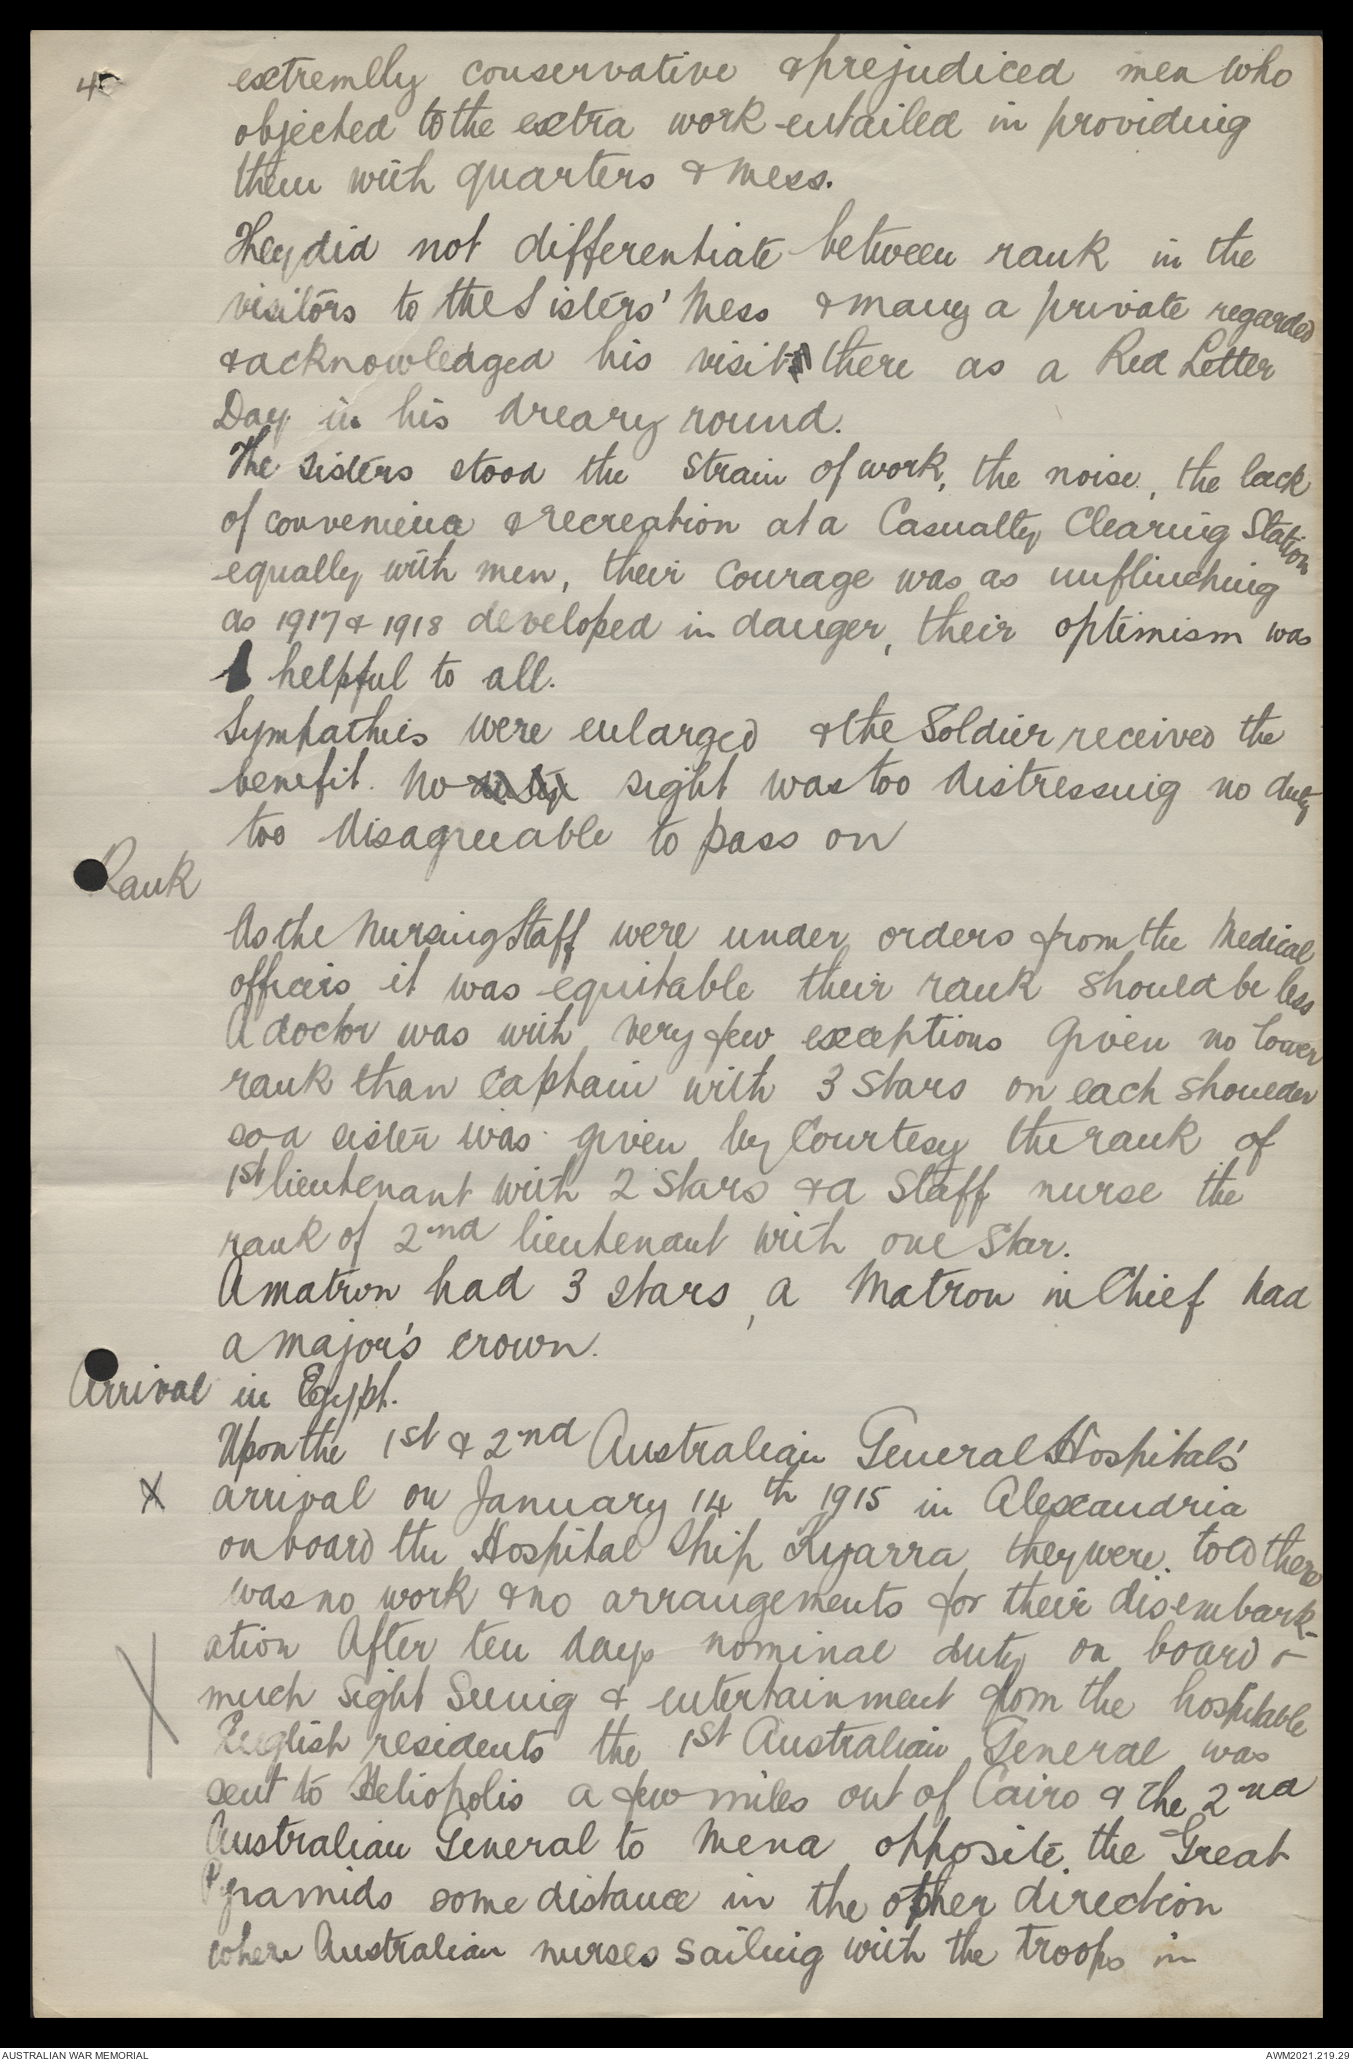 4
extremlly conservative & prejudiced men who
objected to the extra work entailed in providing
them with quarters & mess.
They did not differentiate between rank in the
visitors to the Sisters' Mess & many a private regarded
& acknowledged his visit there as a Red Letter
Day in his dreary round.
The sisters stood the strain of work, the noise, the lack
of convenience & recreation at a Casualty Clearing Station
equally with men, their courage was as unflinching
as 1917 & 1918 developed in danger, their optimism was
helpful to all.
Sympathies were enlarged & the Soldier received the
benefit. No sight was too distressing no duty
too disagreeable to pass on
Rank
As the Nursing Staff were under orders from the Medical
officers it was equitable their rank should be less
A doctor was with very few exceptions given no lower
rank than Captain with 3 stars on each shoulder
so a sister was given by Courtesy the rank of
1st lieutenant with 2 stars & a Staff nurse the
rank of 2nd lieutenant with one star.
A matron had 3 stars, a Matron in Chief had
a major's crown.
Arrival in Egypt.
Upon the 1st & 2nd Australian General Hospitals'
X arrival on January 14th 1915 in Alexandria
on board the Hospital Ship Kyarra they were told there
was no work & no arrangements for their disembark-
ation After ten days nominal duty on board &
X much sight seeing & entertainment from the hospitable
English residents the 1st Australian General was
sent to Heliopolis a few miles out of Cairo & the 2nd
Australian General to Mena opposite the Great
Pyramids some distance in the other direction
where Australian nurses sailing with the troops in
AUSTRALIAN WAR MEMORIAL
AWM2021.219.29